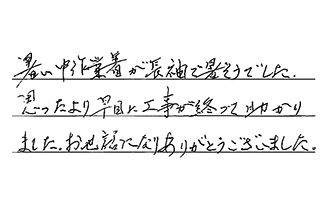 暑い中作業着が長袖で暑そうでした.
思ったより早目に工事が終って助かり
ました.お世話になりありがとうございました.